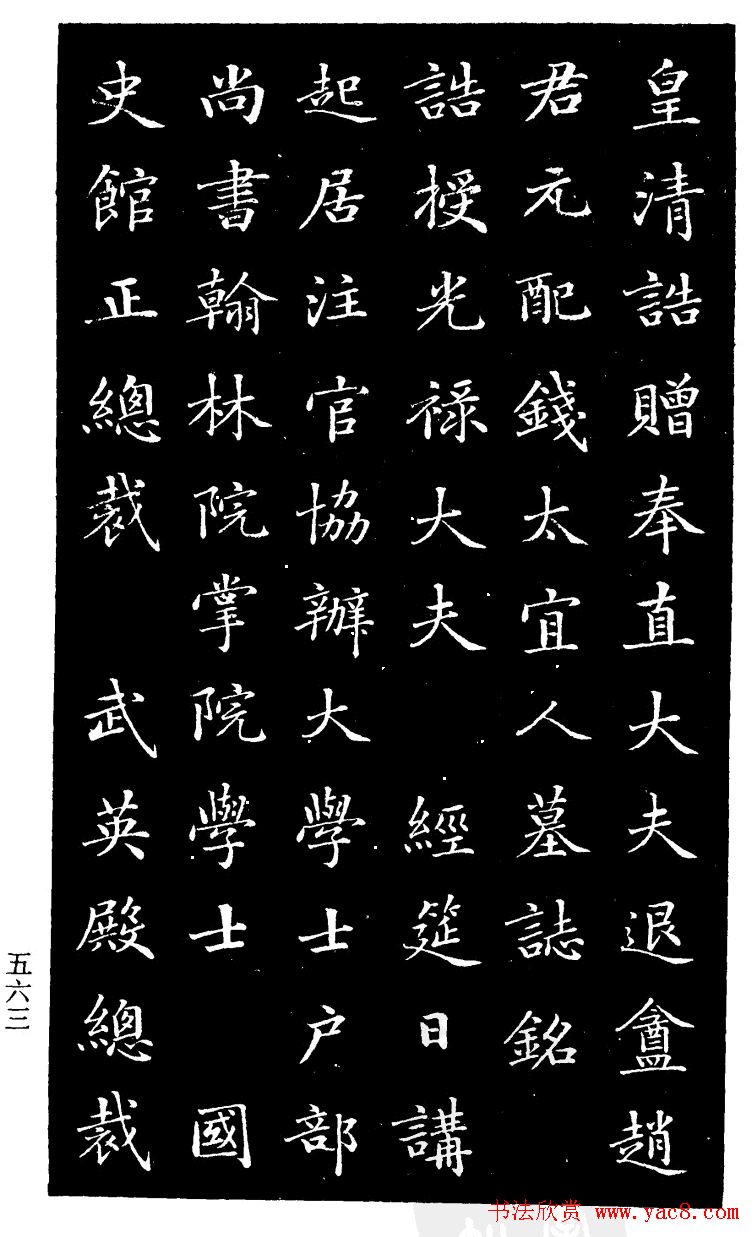 皇清誥贈奉直大夫退盦趙
君元配錢太宜人墓誌銘
誥授光祿大夫　經筵日講
起居注官協辦大學士户部
尚書翰林院掌院學士　國
史館正總裁　武英殿總裁
五六三
书法欣赏 www.yac8.com